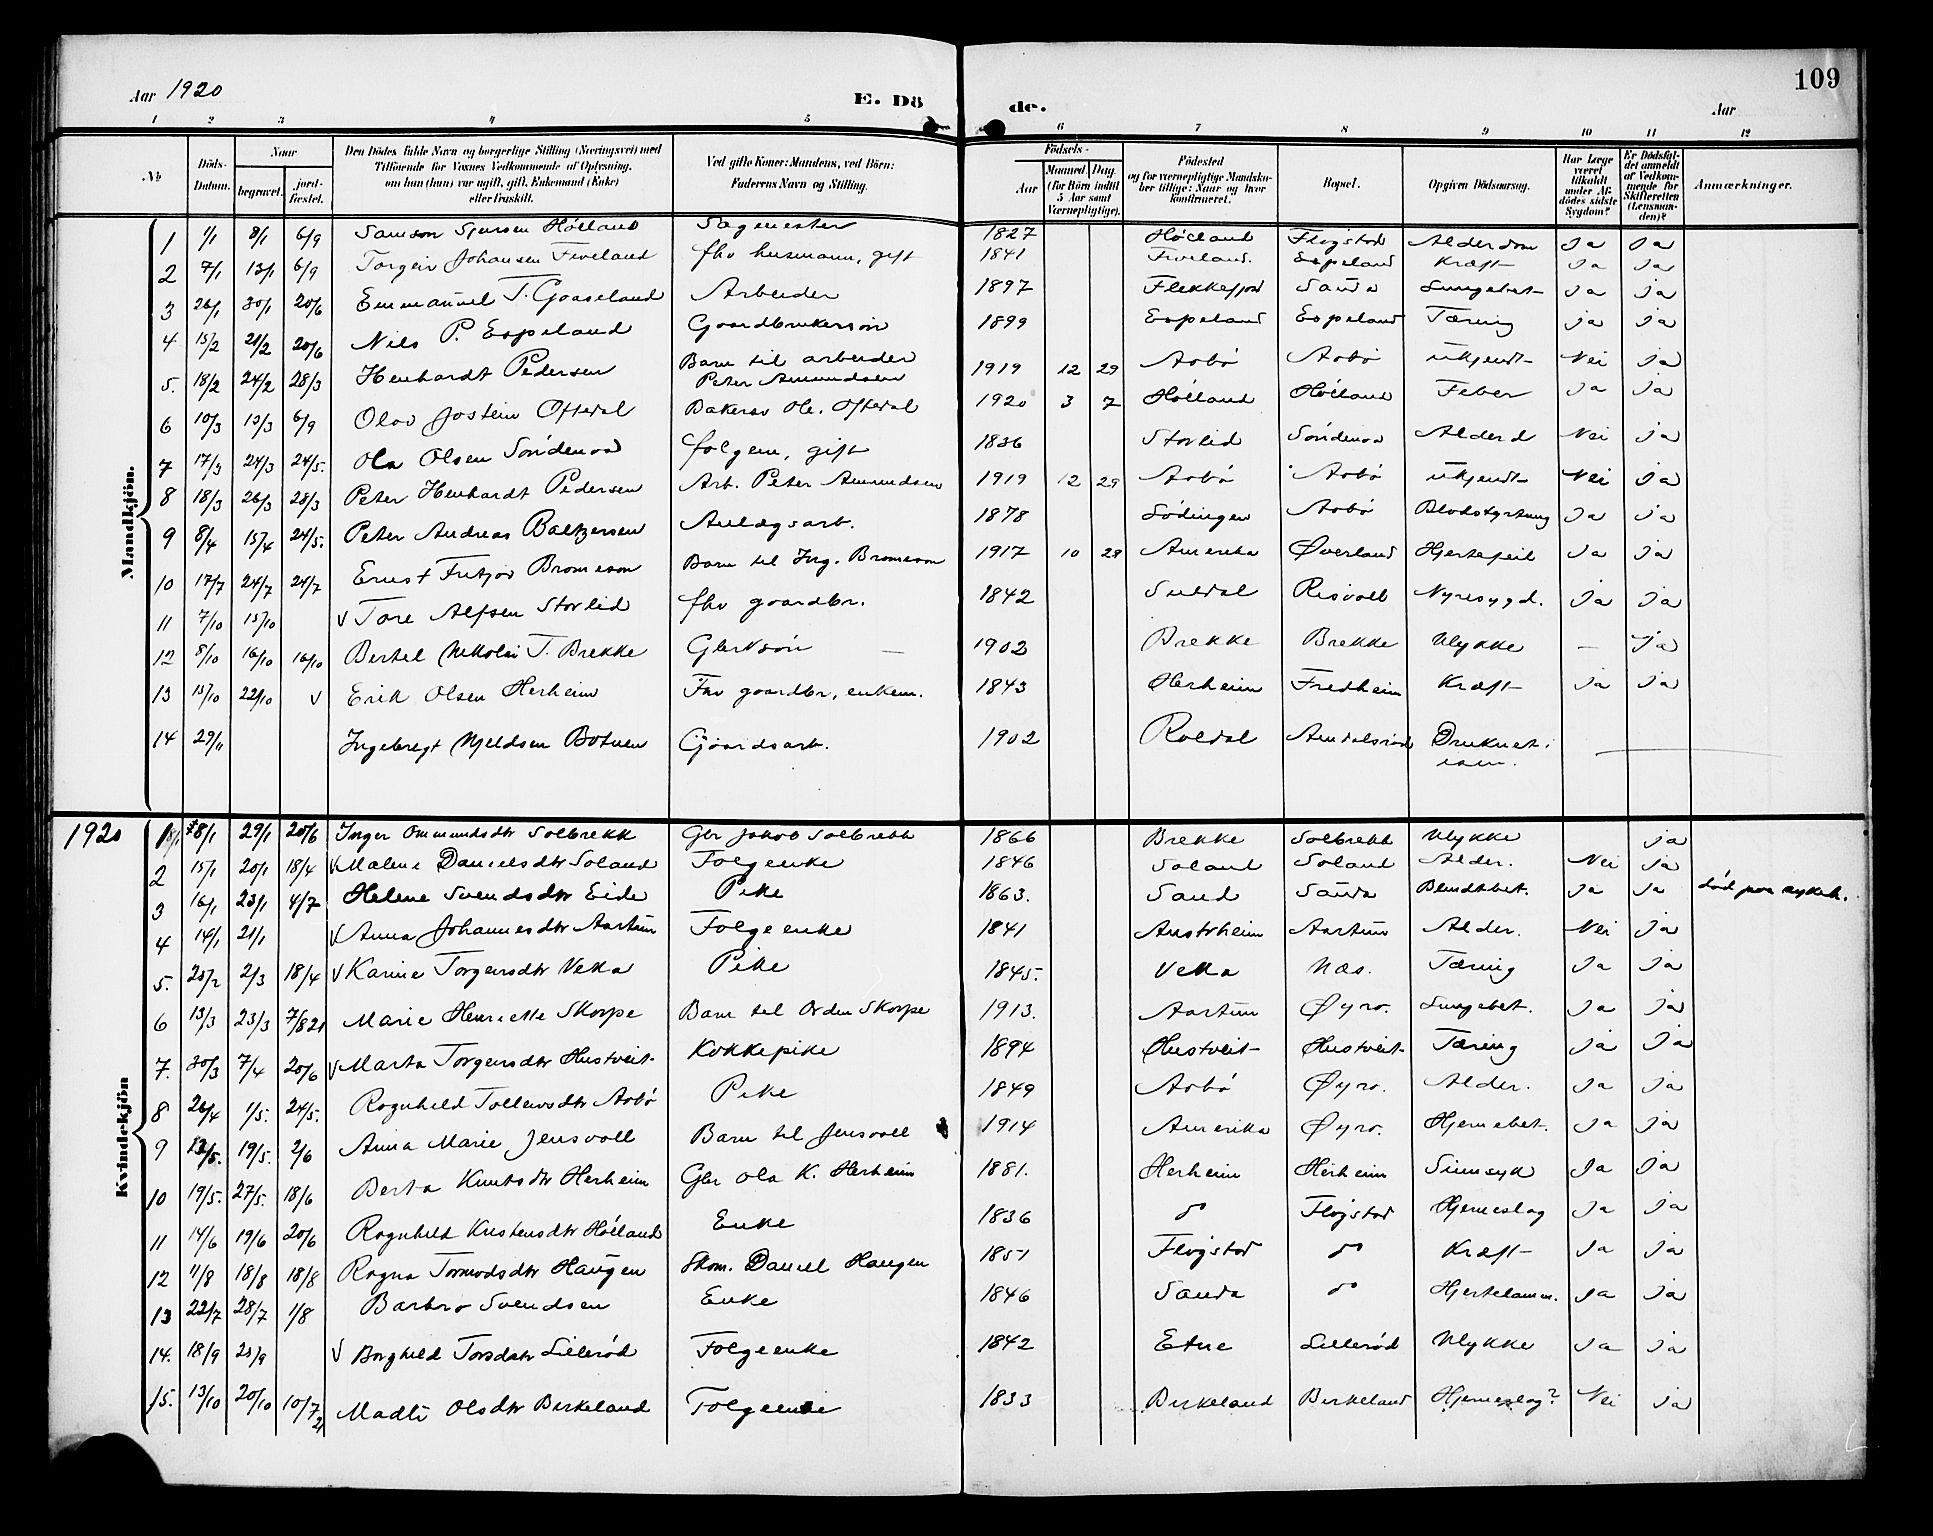 109
Aar 1920
E. Dö
de.
Aar
1 2 3 4 5 6 7 8 9 10 11 12
№
Döds-Datum.
Naar
begravet.
jordfæstet.
Den Dödes fulde Navn og borgerlige Stilling (Næringsvei) med Tilföiende for Voxnes Vedkommende af Oplysning, om han (hun) var ugift, gift, Enkemand (Enke) eller fraskilt.
Ved gifte Koner: Mandens, ved Börn: Faderens Navn og Stilling.
Födsels-
Aar
Maaned. Dag.
(for Börn indtil 5 Aar samt Værnepligtige).
Födested og for værnepligtige Mandskaber tillige: Naar og hvor konfirmeret.
Bopæl.
Opgiven Dödsaarsag.
Har Læge været tilkaldt under Afdödes sidste Sygdom?
Er Dödsfaldet anmeldt af Vedkommende for Skifteretten (Lensmanden)?
Anmærkninger.
Mandkjön.
1 1/1 8/1 6/9 Samson Sjursen Hölland Sagmester 1827 Hölland Flogstad Alderdom Ja Ja
2 7/1 13/1 6/9 Torgeir Johansen Fiveland fhv husmann, gift 1841 Fiveland. Espeland Kræft Ja Ja
3 26/1 30/1 20/6 Emmanuel T. Gaaseland Arbeider 1897 Flekkefjord Sauda Lungebet Ja Ja
4 15/2 21/2 20/6 Nils P. Espeland Gaardbrukersön 1899 Espeland Espeland Tæring Ja Ja
5. 18/2 24/2 28/3 Henhardt Pedersen Barn til arbeider Peter Amundsen 1919 12 29 Aabö Aabö ukjendt Nei Ja
6 10/3 13/3 6/9 Olav Jostein Oftedal Bakersv Ole. Oftedal 1920 3 7 Hölland Hölland Feber Ja Ja
7 17/3 24/3 24/5. Ola Olsen Söndenaa følgem, gift 1836 Storlid Söndenaa Alderd Nei Ja
8 18/3 26/3 28/3 Peter Henhardt Pedersen Arb. Peter Amundsen 1919 12 29 Aabö Aabö ukjendt Nei Ja
9 8/4 15/4 24/5. Peter Andreas Baltzersen Anlægsarb. 1878 Lödingen Aabö Blodstyrtning Ja Ja
10 17/7 24/7 24/7 Ernst Fritjov Bromeson Barn til Ing. Bromeson 1917 10 28 Amerika Øverland Hjertefeil Ja Ja
11 7/10 15/10 v Tore Alfsen Storlid fhv gaardbr. 1842 Suldal Risvoll Nyresygd. Ja Ja
12 8/10 16/10 16/10 Bertel Nikolai T. Brekke Gbrksön — 1902 Brekke Brekke Ulykke — Ja
13 15/10 22/10 v Erik Olsen Herheim Fhv gaardbr, enkem. 1843 Herheim Fredheim Kræft Ja Ja
14 29/11 Ingebregt Kjeldsen Botnen Gaardsarb. 1902 Roldal Amdalsröd Druknet i isen.
1920
Kvindekjön
1 8/1 29/1 20/6 Inger Ommundsdtr Solbrekk Gbr Jakob Solbrekk 1866 Brekke Solbrekk Ulykke Ja
2 15/1 20/1 18/4 v Malene Danielsdtr Soland Folgeenke 1846 Soland Soland Alder. Nei Ja
3 16/1 23/1 4/7 Helene Svendsdtr Eide Pike 1863. Sand Sauda Blindtbet. Ja Ja död paa sykeh.
4 14/1 21/1 v Anna Johannesdtr Aartun Folgeenke 1841 Austrheim Aartun Alder. Nei Ja
5. 23/2 2/3 18/4 v Karine Torgersdtr Vetta Pike 1845. Vetta Næs. Tæring Ja Ja
6 13/3 23/3 7/8 21 Marie Henriette Skorpe Barn til Orden Skorpe 1913. Aartun Øyro. Lungebet. Ja Ja
7. 30/3 7/4 20/6 v Marta Torgersdtr Hustveit Kokkepike 1894 Hustveit Hustveit Tæring Ja Ja
8 26/4 1/5. 24/5. Ragnhild Tollevsdtr Aabö Pike 1849 Aabö Øyro. Alder. Ja Ja
9 12/5. 19/5. 2/6 Anna Marie Jensvoll Barn til Jensvoll 1914 Amerika Øyro. Hjernebet. Ja Ja
10 19/5. 27/5. 18/6 Berta Knutsdtr Herheim Gbr Ola K. Herheim 1881. Herheim Herheim Sinnsyk Ja Ja
11 14/6 19/6 20/6 Ragnhild Kristensdtr Hölland Enke 1836 do Flogstad Hjerneslag Ja Ja
12 11/8 18/8 18/8 Ragna Tormodsdtr Haugen Skom. Daniel Haugen 1851 Flogstad do Kræft Ja Ja
13 22/7 28/7 1/8 Barbro Svendsen Enke 1846 Sauda do Hjertelamm. Ja Ja
14. 18/9 23/9 v Borghild Torsdatr Lillerød Folgeenke 1842 Etne Lillerød Ulykke Ja Ja
15. 13/10 20/10 10/7 21 Madli Olsdtr Birkeland Folgeenke 1833 Birkeland Birkeland Hjerneslag? Nei Ja